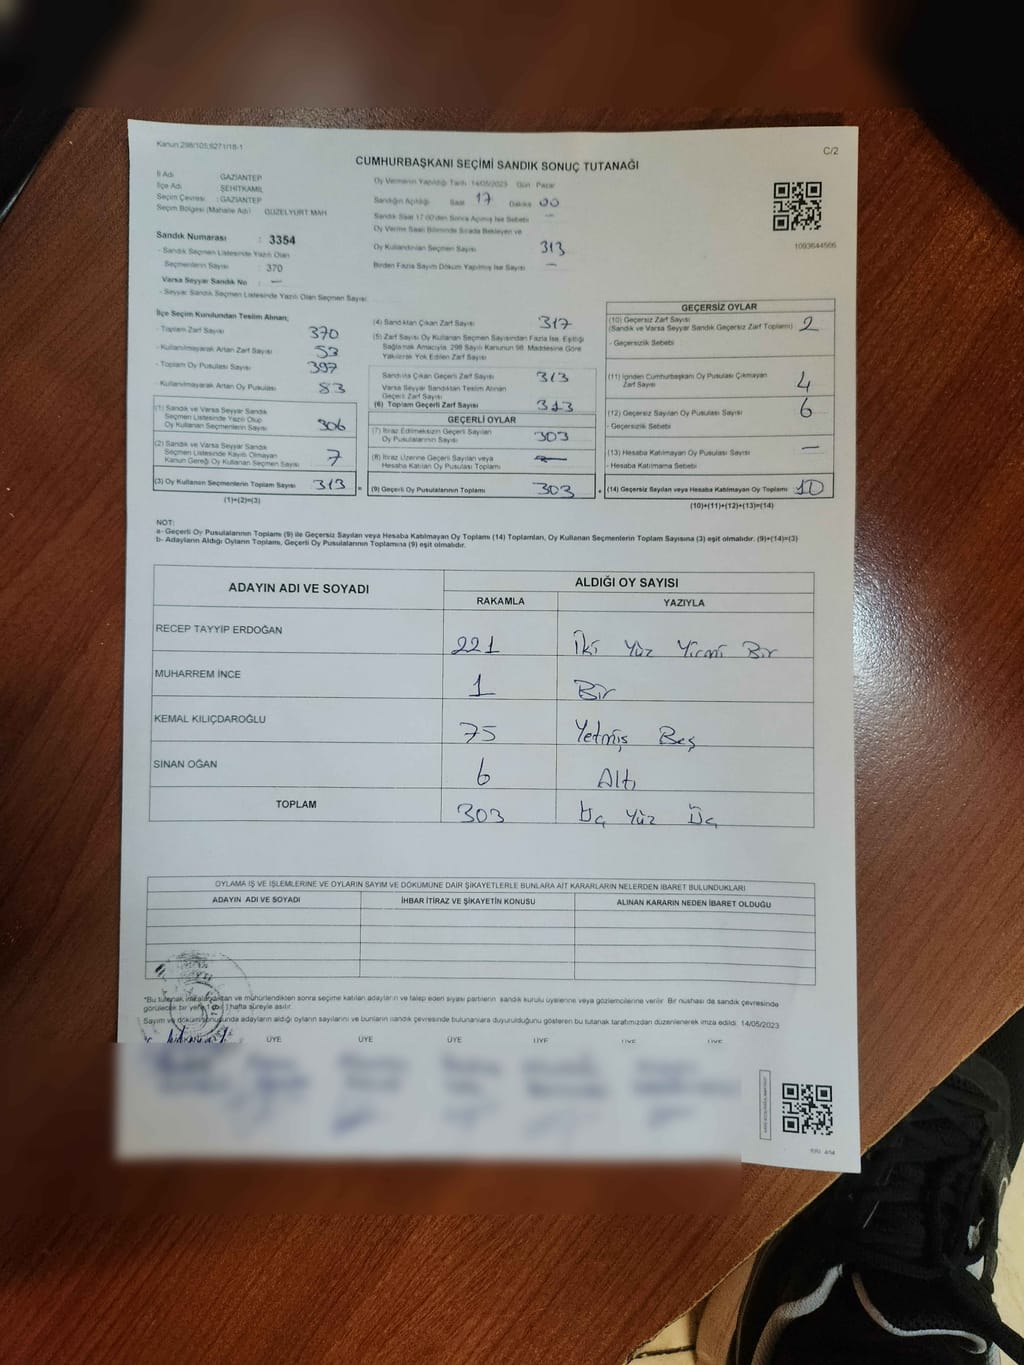 Kanun:298/105,6271/18-1
C/2
CUMHURBAŞKANI SEÇİMİ SANDIK SONUÇ TUTANAĞI
İl Adı : GAZİANTEP
İlçe Adı : ŞEHİTKAMİL
Seçim Çevresi : GAZİANTEP
Seçim Bölgesi (Mahalle Adı) : GÜZELYURT MAH.
Sandık Numarası : 3354
- Sandık Seçmen Listesinde Yazılı Olan
Seçmenlerin Sayısı : 370
Varsa Seyyar Sandık No : —
- Seyyar Sandık Seçmen Listesinde Yazılı Olan Seçmen Sayısı:
Oy Vermenin Yapıldığı Tarih : 14/05/2023 Gün : Pazar
Sandığın Açıldığı Saat 17 Dakika 00
Sandık Saat 17:00'den Sonra Açılmış İse Sebebi —
Oy Verme Saati Bitiminde Sırada Bekleyen ve
Oy Kullandırılan Seçmen Sayısı 313
Birden Fazla Sayım Döküm Yapılmış İse Sayısı —
1093644566
İlçe Seçim Kurulundan Teslim Alınan;
- Toplam Zarf Sayısı 370
- Kullanılmayarak Artan Zarf Sayısı 53
- Toplam Oy Pusulası Sayısı 397
- Kullanılmayarak Artan Oy Pusulası 83
(1) Sandık ve Varsa Seyyar Sandık
Seçmen Listesinde Yazılı Olup
Oy Kullanan Seçmenlerin Sayısı 306
(2) Sandık ve Varsa Seyyar Sandık
Seçmen Listesinde Kayıtlı Olmayan
Kanun Gereği Oy Kullanan Seçmen Sayısı 7
(3) Oy Kullanan Seçmenlerin Toplam Sayısı 313 =
(1)+(2)=(3)
(4) Sandıktan Çıkan Zarf Sayısı 317
(5) Zarf Sayısı Oy Kullanan Seçmen Sayısından Fazla İse, Eşitliği
Sağlamak Amacıyla, 298 Sayılı Kanunun 98. Maddesine Göre
Yakılarak Yok Edilen Zarf Sayısı
Sandıkta Çıkan Geçerli Zarf Sayısı 313
Varsa Seyyar Sandıktan Teslim Alınan
Geçerli Zarf Sayısı
(6) Toplam Geçerli Zarf Sayısı 313
GEÇERLİ OYLAR
(7) İtiraz Edilmeksizin Geçerli Sayılan
Oy Pusulalarının Sayısı 303
(8) İtiraz Üzerine Geçerli Sayılan veya
Hesaba Katılan Oy Pusulası Toplamı —
(9) Geçerli Oy Pusulalarının Toplamı 303 +
GEÇERSİZ OYLAR
(10) Geçersiz Zarf Sayısı
(Sandık ve Varsa Seyyar Sandık Geçersiz Zarf Toplamı) 2
- Geçersizlik Sebebi
(11) İçinden Cumhurbaşkanı Oy Pusulası Çıkmayan
Zarf Sayısı 4
(12) Geçersiz Sayılan Oy Pusulası Sayısı 6
- Geçersizlik Sebebi
(13) Hesaba Katılmayan Oy Pusulası Sayısı —
- Hesaba Katılmama Sebebi
(14) Geçersiz Sayılan veya Hesaba Katılmayan Oy Toplamı 10
(10)+(11)+(12)+(13)=(14)
NOT:
a- Geçerli Oy Pusulalarının Toplamı (9) ile Geçersiz Sayılan veya Hesaba Katılmayan Oy Toplamı (14) Toplamları, Oy Kullanan Seçmenlerin Toplam Sayısına (3) eşit olmalıdır. (9)+(14)=(3)
b- Adayların Aldığı Oyların Toplamı, Geçerli Oy Pusulalarının Toplamına (9) eşit olmalıdır.
ADAYIN ADI VE SOYADI ALDIĞI OY SAYISI
RAKAMLA YAZIYLA
RECEP TAYYİP ERDOĞAN 221 İki Yüz Yirmi Bir
MUHARREM İNCE 1 Bir
KEMAL KILIÇDAROĞLU 75 Yetmiş Beş
SİNAN OĞAN 6 Altı
TOPLAM 303 Üç Yüz Üç
OYLAMA İŞ VE İŞLEMLERİNE VE OYLARIN SAYIM VE DÖKÜMÜNE DAİR ŞİKAYETLERLE BUNLARA AİT KARARLARIN NELERDEN İBARET BULUNDUKLARI
ADAYIN ADI VE SOYADI İHBAR İTİRAZ VE ŞİKAYETİN KONUSU ALINAN KARARIN NEDEN İBARET OLDUĞU
*Bu tutanak imzalandıktan ve mühürlendikten sonra seçime katılan adayların ve talep eden siyasi partilerin sandık kurulu üyelerine veya gözlemcilerine verilir. Bir nüshası da sandık çevresinde
görülecek bir yere 1 (bir) hafta süreyle asılır.
Sayım ve döküm sonucunda adayların aldığı oyların sayılarını ve bunların sandık çevresinde bulunanlara duyurulduğunu gösteren bu tutanak tarafımızdan düzenlenerek imza edildi. 14/05/2023
ÜYE ÜYE ÜYE ÜYE ÜYE ÜYE